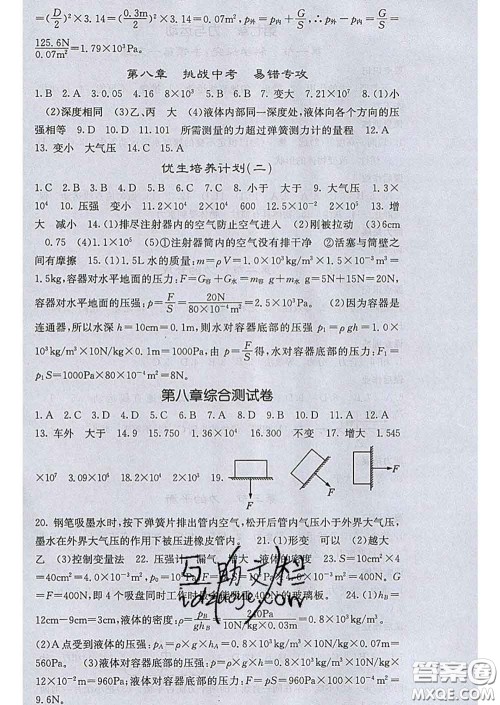 =(D/2)²×3.14=(0.3m/2)²×3.14=0.07m², p外=p内+G/S, ∴p外-p内=G/S=
125.6N/0.07m²=1.79×10³Pa.
第八章 挑战中考 易错专攻
1.B 2.A 3.0.05 4.16 8×10³ 5.B 6.D 7.变大 7.21×10⁷ 8.(1)小
(2)深度相同 (3)乙、丙 大 (4)液体内部同一深度处,液体向各个方向的压
强相等 9.D 10.D 11.101 所需测量的力超过弹簧测力计的量程 12.A
13.变小 大气压 14.C 15.A
优生培养计划(二)
1.C 2.B 3.B 4.D 5.D 6.D 7.C 8.小于 大于 9.大气压 1.3×
10⁴ 10.压强 变小 11.2×10⁴ 2×10⁴ 600 12.5×10⁻² 2×10⁵ 13.增
大 减小 14.(1)排尽注射器内的空气防止空气进入 (2)刚被拉动 (3)6cm
0.75 (4)1.1×10⁵ (5)①注射器筒内的空气没有排干净 ②活塞与筒壁之
间有摩擦 15.(1)1.5L水的质量:m=ρV=1.0×10³kg/m³×1.5×10⁻³m³=
1.5kg,容器对水平地面的压力:F=G容+G水=m容g+m水g=5N+15N=20N,
容器对水平地面的压强:p=F/S=20N/80×10⁻⁴m²=2.5×10³Pa. (2)因为容器是
连通器,所以水深h=10cm=0.1m,则水对容器底部的压强p₁=ρgh=1.0×
10³kg/m³×10N/kg×0.1m=1000Pa,由p=F/S得,水对容器底部的压力:F₁=
p₁S=1000Pa×80×10⁻⁴m²=8N.
第八章综合测试卷
1.A 2.C 3.D 4.C 5.D 6.B 7.A 8.D 9.B 10.D 11.A 12.A
13.车外 大于 14.9 15.750 1.36×10⁴ 16.300 不变 17.增大 1.545
×10⁷ 3.09×10⁶ 18.2×10⁴ 2×10⁵ 19.
F F F
20.钢笔吸墨水时,按下弹簧片排出管内空气,松开后管内气压小于外界大气压,
墨水在外界大气压的作用下被压进橡皮管内. 21.(1)形变 可以 (2)越大
乙 (3)控制变量法 22.压强计 漏气 增大 液体的密度 23.S=10cm²×4
=40cm²=4.0×10⁻³m², p₀=1.0×10⁵Pa, F=p₀S=1.0×10⁵Pa×4.0×10⁻³m²=400N. G
=F=400N,即4个吸盘同时工作时最多能吸起400N的玻璃板. 24.(1)hA=
12cm-9cm=3cm,液体的密度:ρ=pB/ghB=240Pa/(10N/kg×0.03m)=0.8×10³kg/m³
(2)A点受到液体的压强:pA=ρghA=0.8×10³kg/m³×10N/kg×0.07m=
560Pa. (3)液体对容器底部的压强:p=ρgh=0.8×10³kg/m³×10N/kg×0.12m=
960Pa,液体对容器底部的压力:F=pS=960Pa×100×10⁻⁴m²=
9.6N.
互助文档
答案圈
MXQE.COM